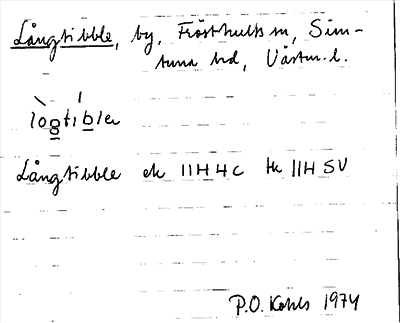 Långtibble, by, Frösthults sn, Sim-
tuna hd, Västm. l.
lo̲g̲tib̲ler
Långtibble ek 11H 4c tk 11H SV
P.O. Kohls 1974